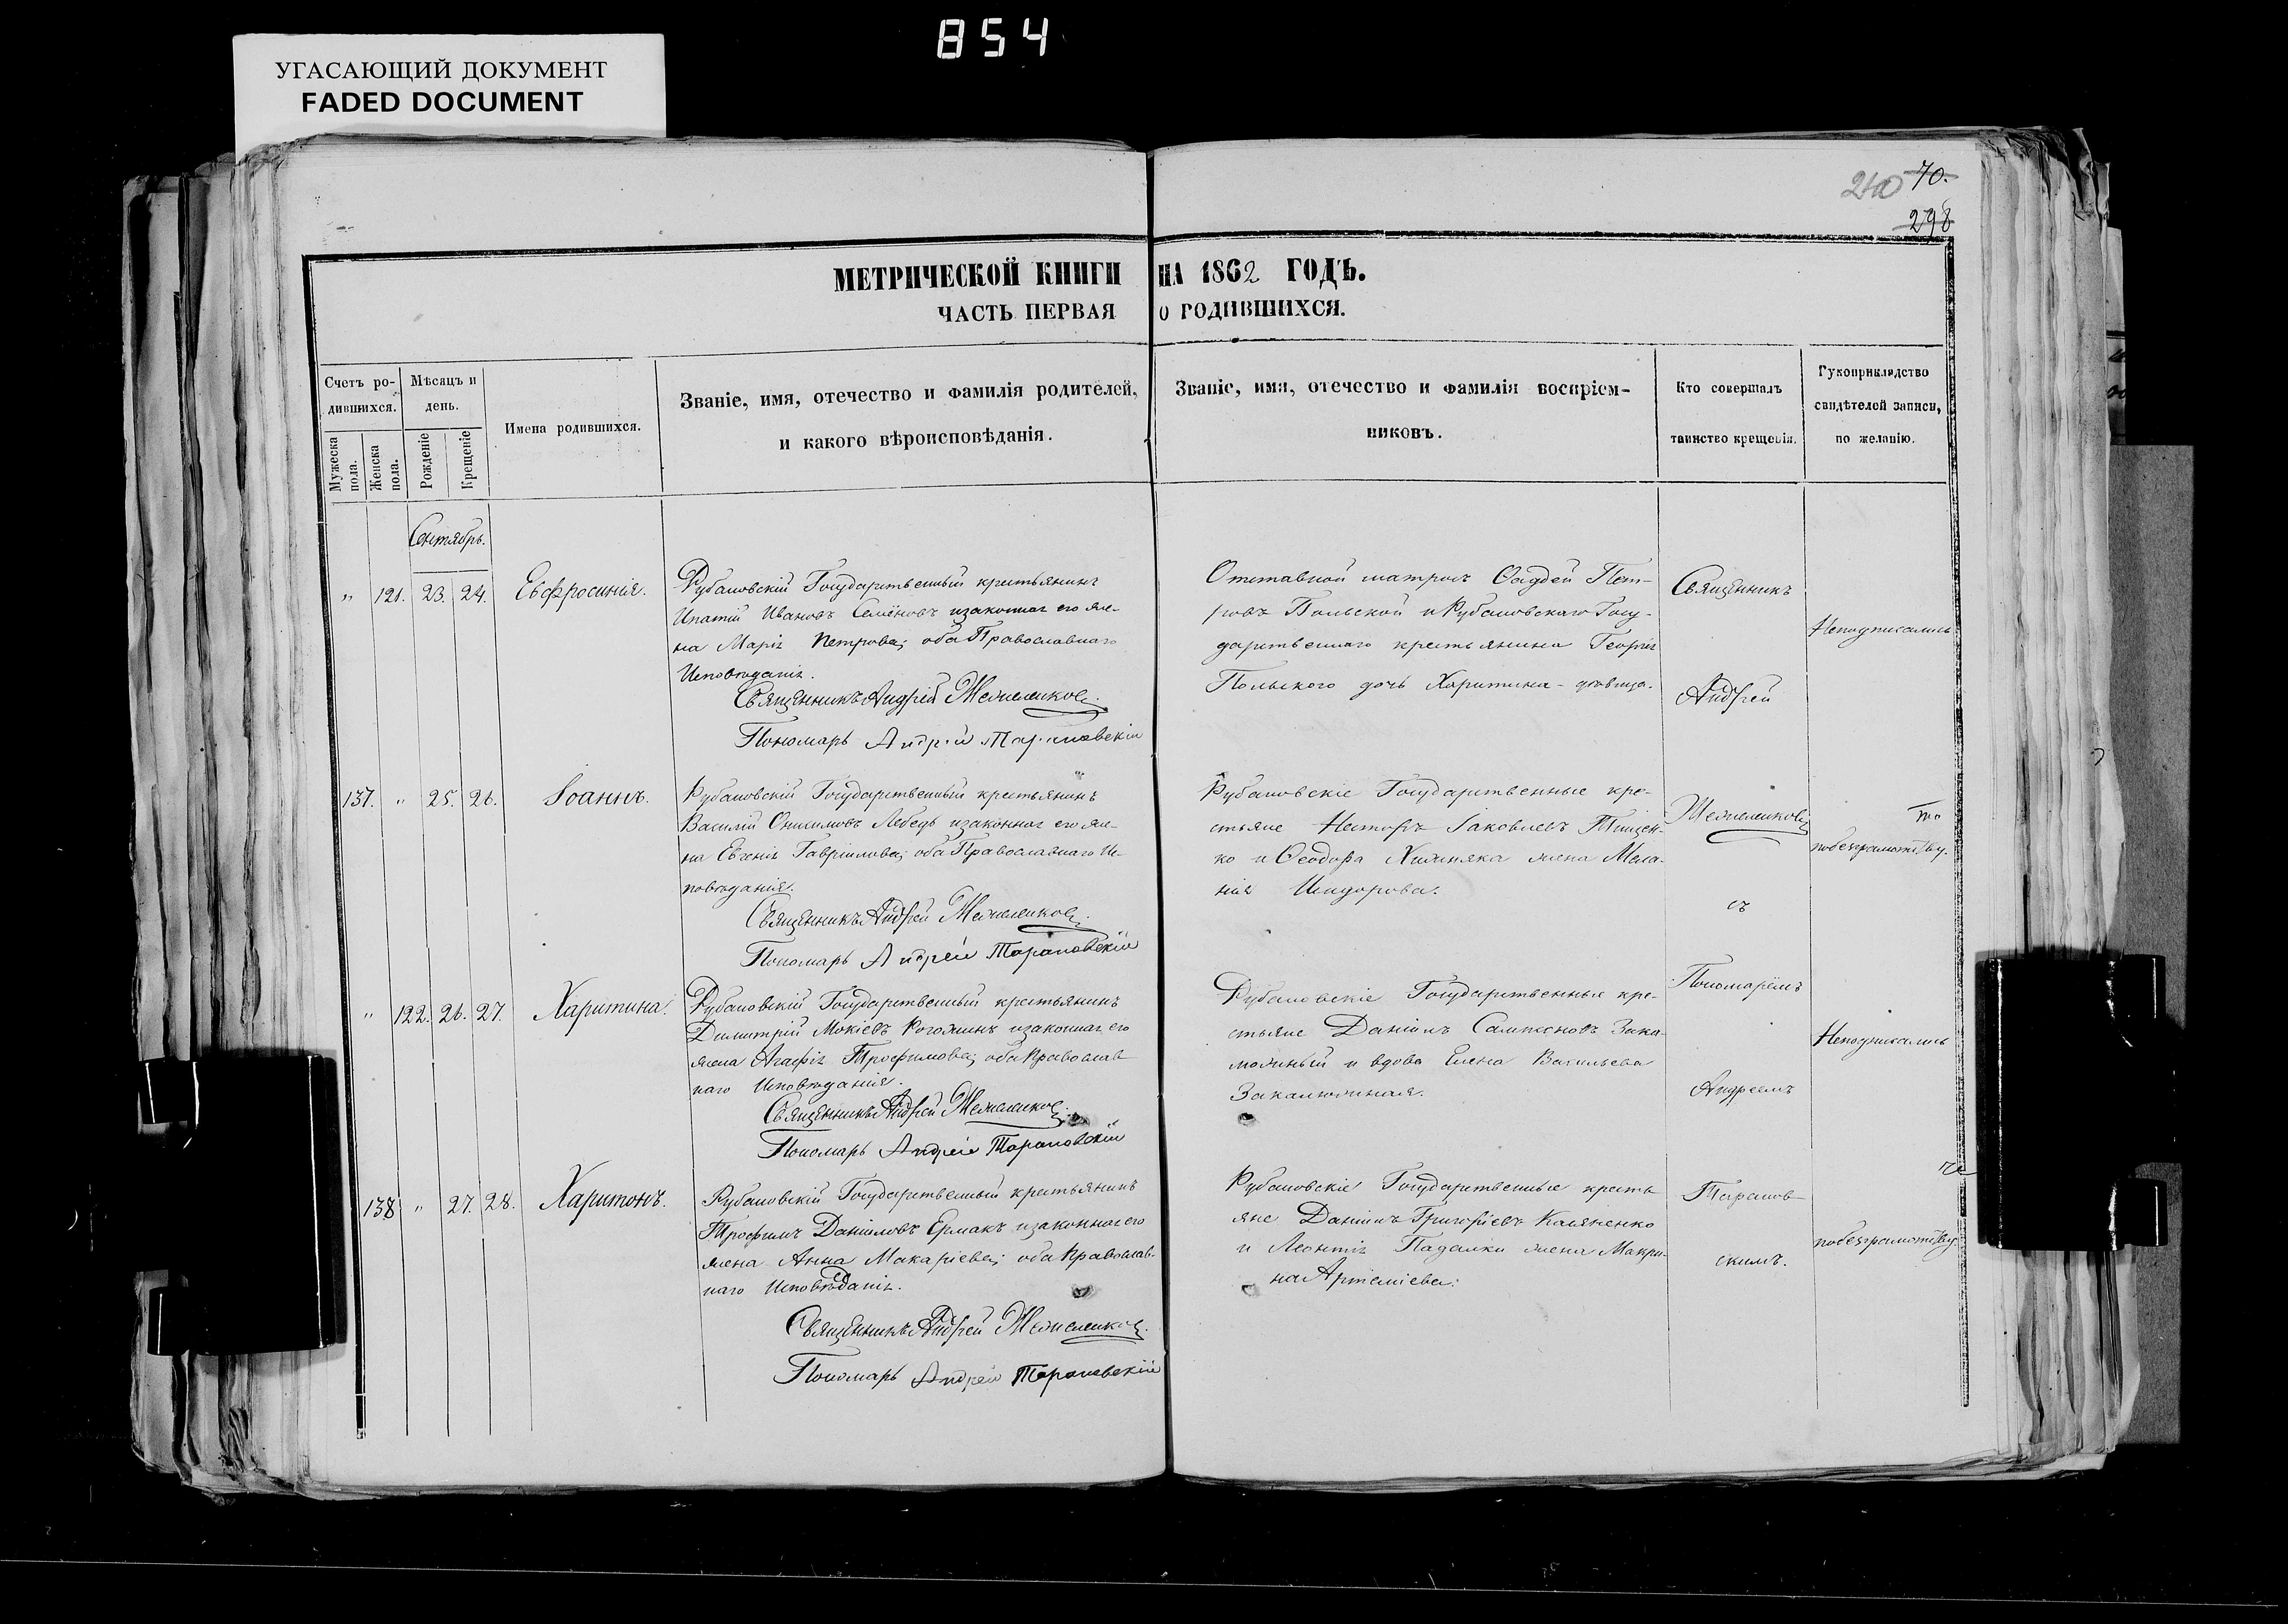 854
УГАСАЮЩИЙ ДОКУМЕНТ
FADED DOCUMENT
240 70.
298
МЕТРИЧЕСКОЙ КНИГИ НА 1862 ГОДЪ.
ЧАСТЬ ПЕРВАЯ О РОДИВШИХСЯ.
Счетъ ро-
дившихся.
Мужеска пола.
Женска пола.
Мѣсяцъ и
день.
Рожденіе
Крещеніе
Имена родившихся.
Званіе, имя, отечество и фамилія родителей,
и какого вѣроисповѣданія.
Званіе, имя, отечество и фамилія воспріем-
никовъ.
Кто совершалъ
таинство крещенія.
Рукоприкладство
свидѣтелей записи,
по желанію.
Сентябрь.
" 121. 23. 24. Евфросинія.
Рубановскій Государственный крестьянинъ
Ипатій Ивановъ Семёновъ изаконная его же-
на Марія Петрова; оба Православнаго
Исповѣданія.
Священникъ Андрей Жежеленковъ.
Пономарь Андрей Тарановскій
Отставной матросъ Фаддей Пет-
ровъ Польской и Рубановскаго Госу-
дарственнаго крестьянина Георгія
Польского дочь Харитина - дѣвица.
137. " 25. 26. Іоаннъ.
Рубановскій Государственный крестьянинъ
Василій Онисимовъ Лебедь изаконная его же-
на Евгенія Гавріилова; оба Православнаго Ис-
повѣданія.
Священникъ Андрей Жежеленковъ.
Пономарь Андрей Тарановскій
Рубановскіе Государственные кре-
стьяне Несторъ Іаковлевъ Тищен-
ко и Ѳеодора Хижняка жена Мела-
нія Исидорова.
" 122. 26. 27. Харитина.
Рубановскій Государственный крестьянинъ
Димитрій Мокіевъ Рогожинъ изаконная его
жена Агафія Трофимова; оба Православ-
наго Исповѣданія.
Священникъ Андрей Жежеленковъ.
Пономарь Андрей Тарановскій
Рубановскіе Государственные кре-
стьяне Даніилъ Сампсоновъ Зака-
можный и вдова Елена Васильева
138 " 27. 28. Харитонъ.
Рубановскій Государственный крестьянинъ
Трофимъ Даніиловъ Ермакъ изаконная его
жена Анна Макаріева; оба Православ-
наго Исповѣданія.
Священникъ Андрей Жежеленковъ.
Пономарь Андрей Тарановскій
Рубановскіе Государственные кресть-
яне Даніилъ Григоріевъ Касяненко
и Леонтія Падалки жена Макри-
на Артеміева.
Священникъ
Андрей
Жежеленковъ
съ
Пономарёмъ
Андреемъ
Таранов-
скимъ.
Неподписались
по
небезграмотству.
Неподписались